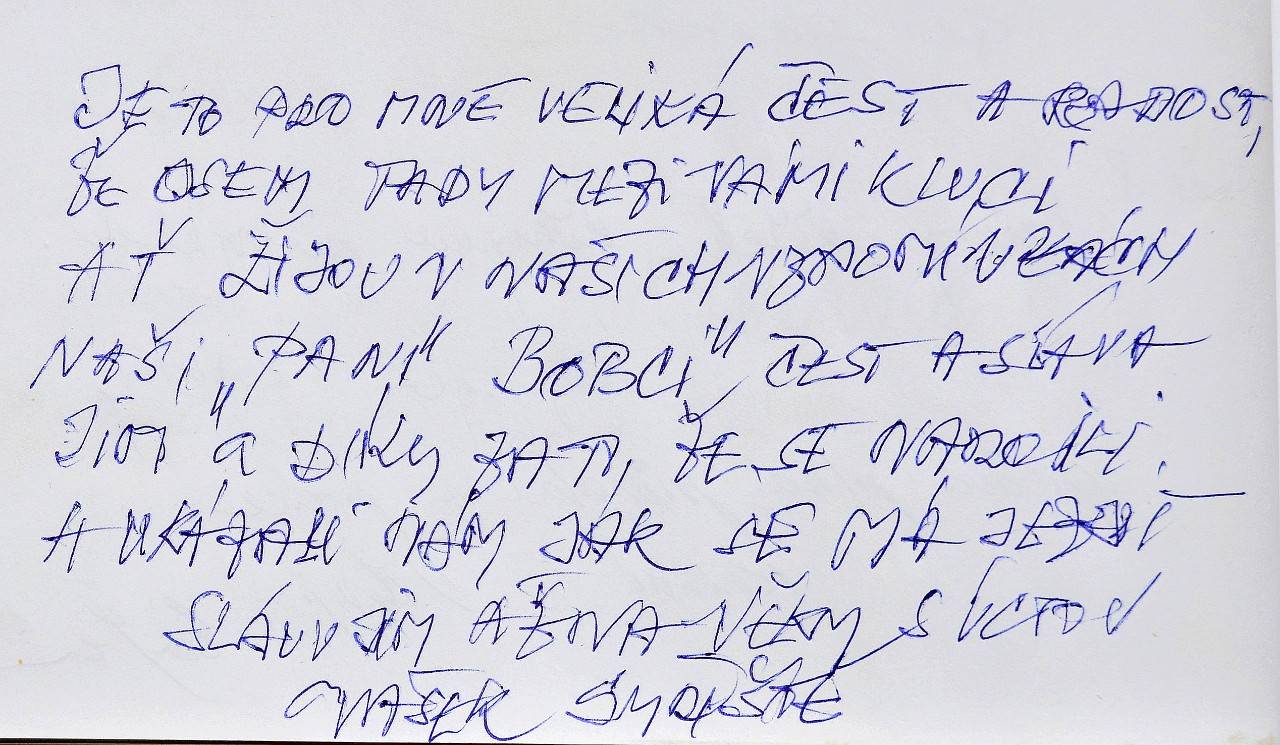 JE TO PRO MNE VELIKÁ ČEST A RADOST,
ŽE JSEM TADY MEZI VÁMI KLUCI
AŤ ŽIJOU V NAŠICH VZPOMÍNKÁCH
NAŠI „PANI" BOBCI" ČEST A SLÁVA
JIM" a DÍKY ZA TO, ŽE SE NARODILI
A UKÁZALI NÁM JAK SE MÁ JEZDIT
SLÁVU JIM AŽ NA VĚKY S ÚCTOU
VAŠEK